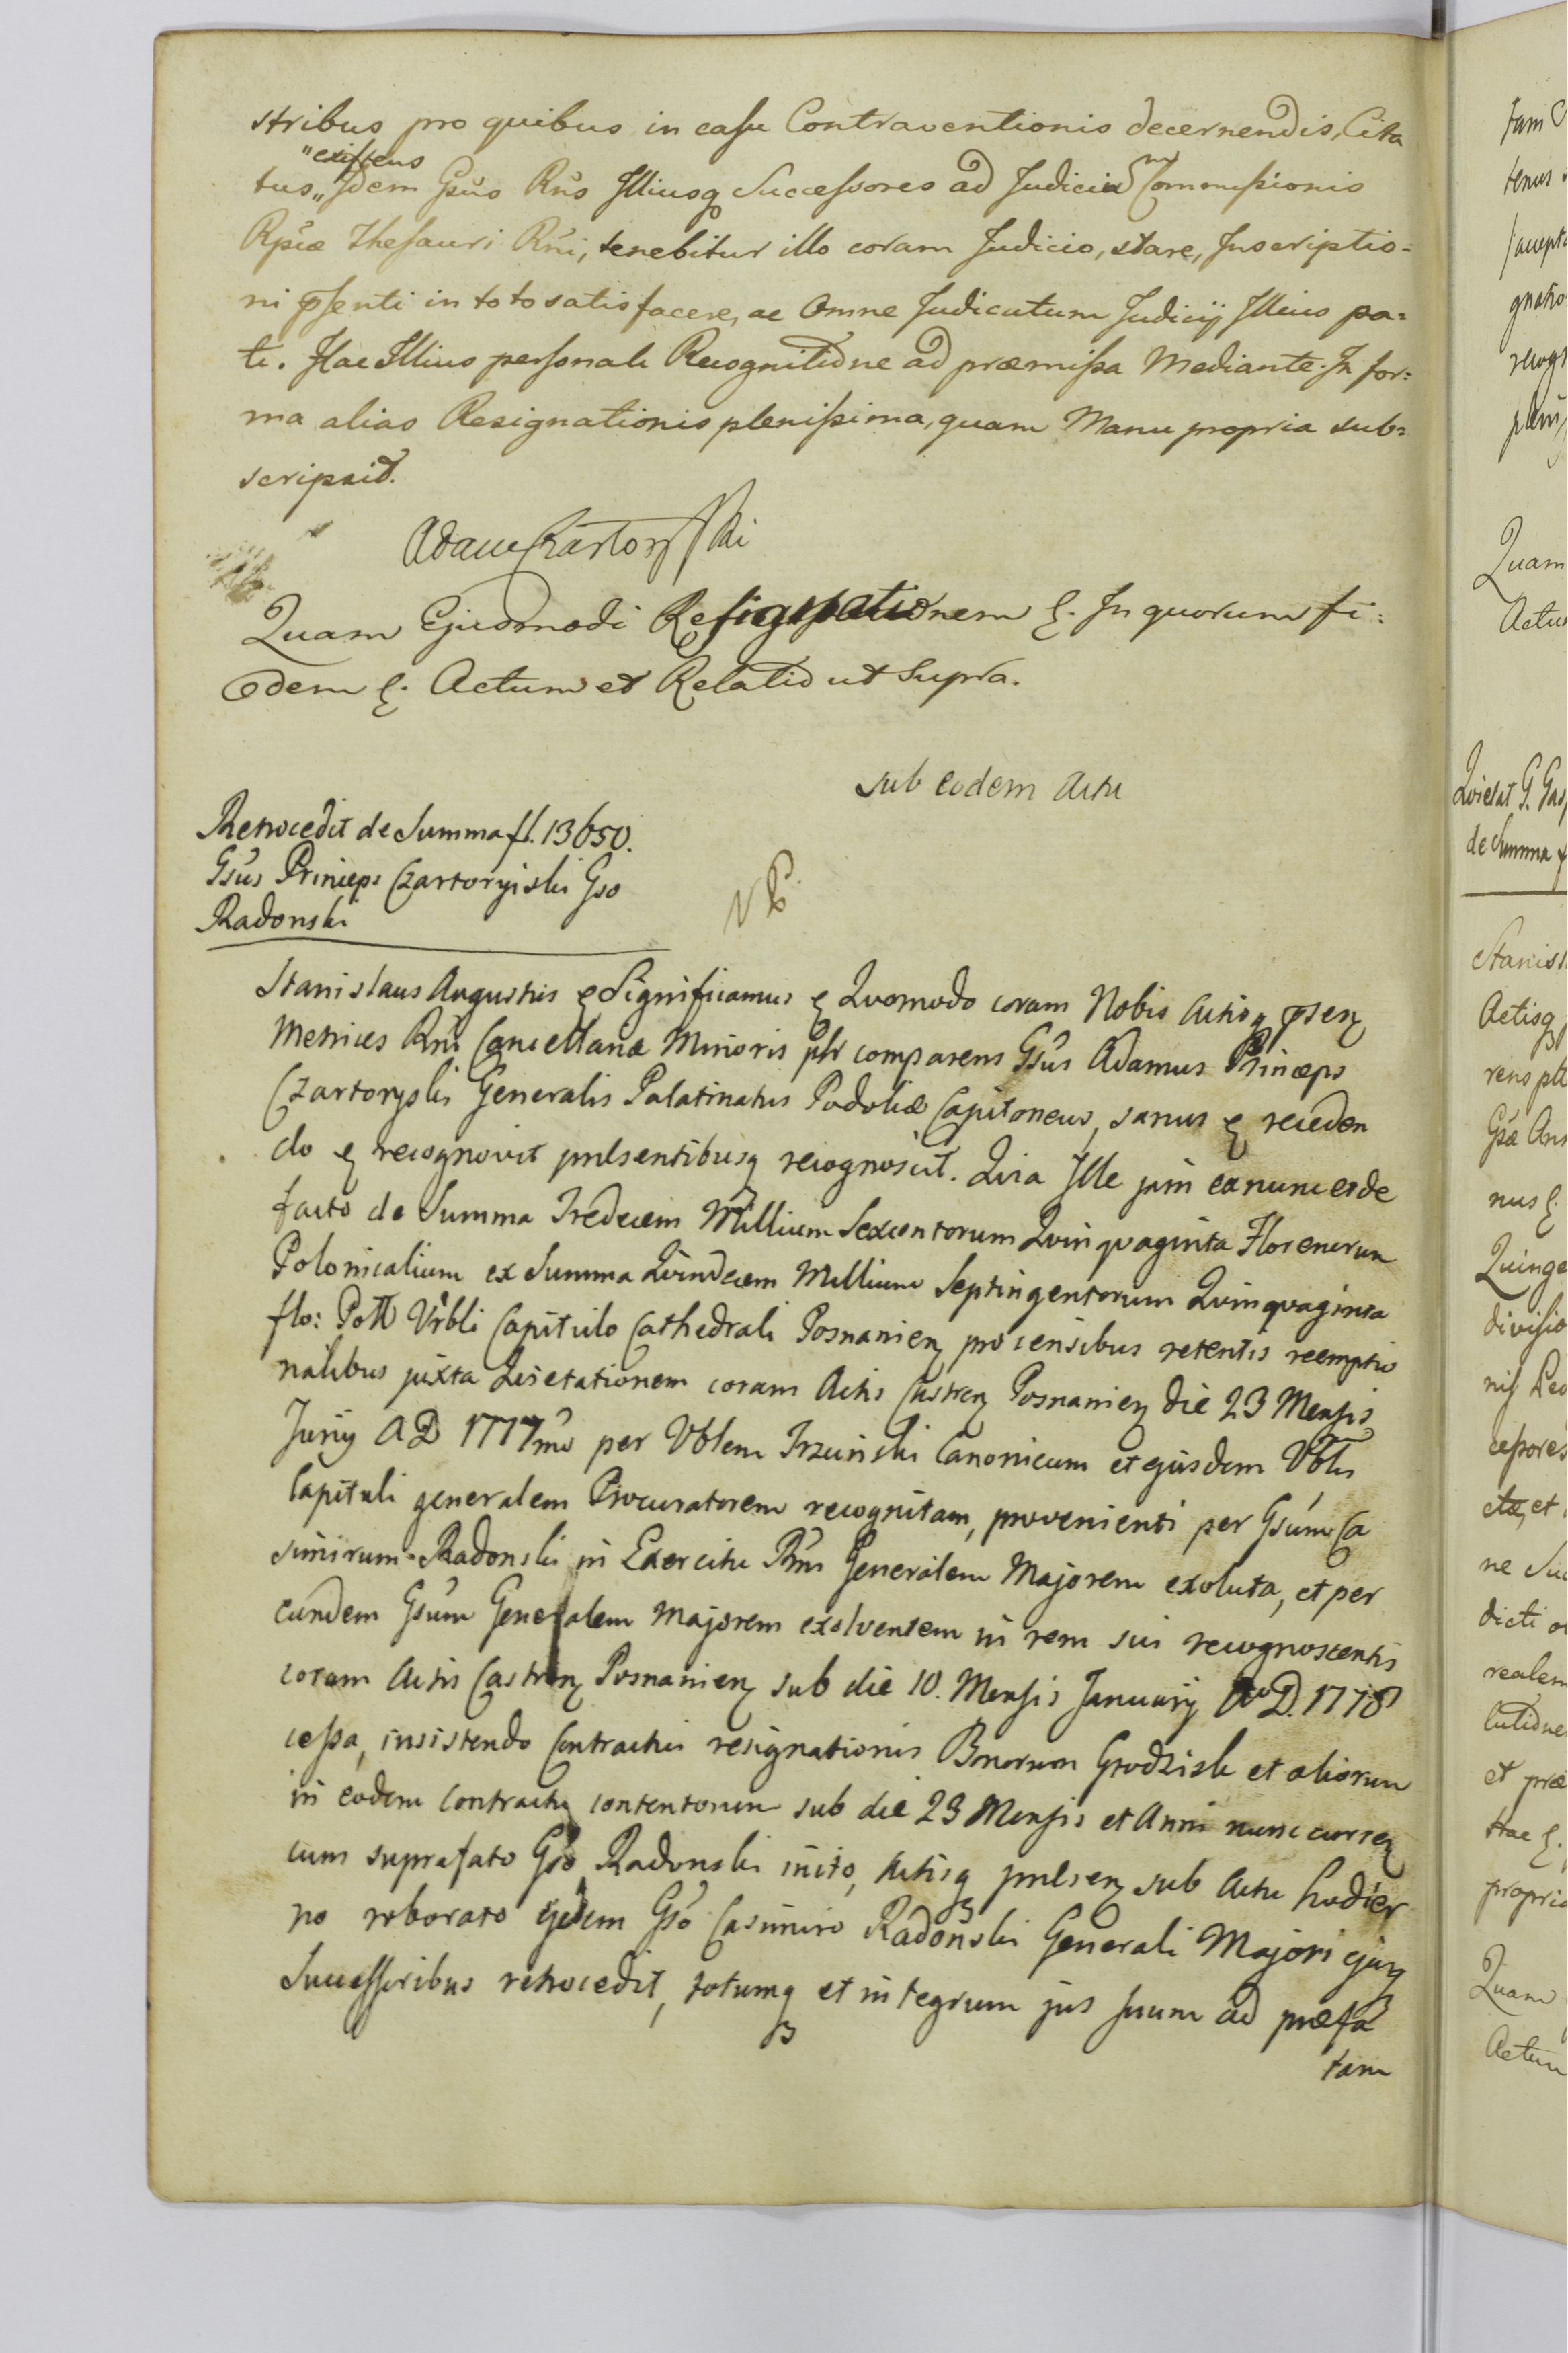 stribus pro quibus in casu Contraventionis decernendis, Cita
"existens
tus,, Idem Gsus Rns Illiusq Successores ad Judicia Commissionis
Rpcæ Thesauri Rni, tenebitur illo coram Judicio, stare, Inscriptio=
ni pssenti in toto satisfacere, ac Omne Judicatum Judicij Illius pa=
ti. Hac Illius personali Recognitione ad præmissa Mediante. In for=
ma alias Resignationis plenissima, quam Manu propria sub=
scripsit.
Adam Czartoryski
Quam Ejusmodi Resignationem &. In quorum fi:
dem &. Actum et Relatio ut Supra.
sub eodem Actu
Retrocedit de Summa fl. 13650.
Gsus Princeps Czartoryiski Gso
Radonski
Stanislaus Augustus & Significamus & Quomodo coram Nobis Actisq pssen
Metrices Rni Cancellariæ Minoris plr comparens Gsus Adamus Princeps
Czartoryski Generalis Palatinatus Podoliæ Capitoneus, sanus & receden
do & recognovit pnlsentibusq recognoscit. Quia Ille jam ex nunc et de
facto de Summa Tredecem Millium Sexcentorum Quinquaginta Florenorum
Polonicalium ex Summa Quindecem Millium Septingentorum Quinquaginta
flo: Poll Vrbli Capitulo Cathedrali Posnanien pro censibus retentis reemptio
nalibus juxta Quietationem coram Actis Castren Posnanien die 23 Mensis
Junij A D 1777mo per Vblem Trzcinski Canonicum et ejusdem Vblis
Capituli generalem Procuratorem recognitam, provenienti per Gsum Ca
simirum Radonski in Exercitu Rni Generalem Majorem exoluta, et per
eundem Gsum Generalem Majorem exolventem in rem sui recognoscentis
coram Actis Castren Posnanien sub die 10. Mensis Januarij A D. 1778
cessa, insistendo Contractui resignationis Bonorum Grodzisk et aliorum
in eodem Contractu contentorum sub die 23 Mensis et Anni nunc curren
cum suprafato Gso Radonski inito, Actisq pnlsen sub Actu hodier
no roborato eidem Gso Casimiro Radonski Generali Majori ejusq
Successoribus retrocedit, totumq et integrum jus suum ad præfa
tam